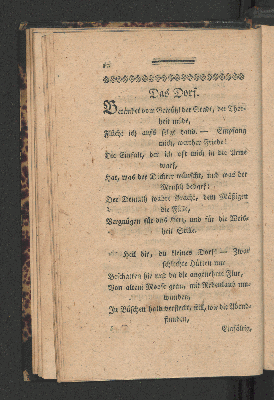 Das Dorf.
Betäubt vom Gewühl der Stadt, der Thor-
heit müde,
Flücht ich aufs stille Land. — Empfang
mich, werther Friede!
Die Einfalt, der ich oft mich in die Arme
warf,
Hat, was der Dichter wünscht, und was der
Mensch bedarf:
Der Demuth wahre Pracht, dem Mäßigen
die Fülle,
Vergnügen für das Herz, und für die Weis-
heit Stille.
Heil dir, du kleines Dorf! — Zwar
schlechte Hütten nur
Beschatten hie und da die angenehme Flur,
Von altem Moose grau, mit Rebenlaub um-
wunden,
In Büschen halb versteckt, still, wie die Abend-
stunden,
Einfältig,